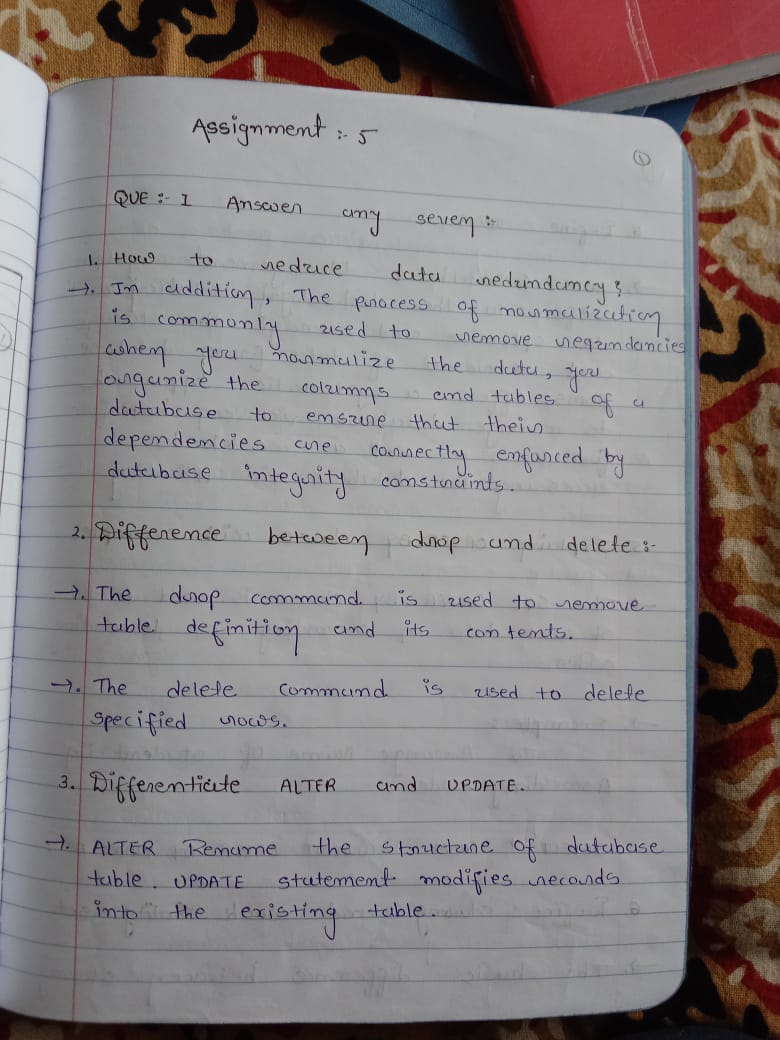 Assignment :- 5
1
QUE :- I Answer any seven :-
1. How to reduce data redundancy?
→. In addition, The process of normalization
is commonly used to remove requndancies
when you normalize the data, you
organize the columns and tables of a
database to ensure that their
dependencies are correctly enforced by
database integrity constraints.
2. Difference between drop and delete :-
→. The drop command is used to remove
table definition and its contents.
→. The delete command is used to delete
specified rows.
3. Differentiate ALTER and UPDATE.
→. ALTER Rename the structure of database
table. UPDATE statement modifies records
into the existing table.